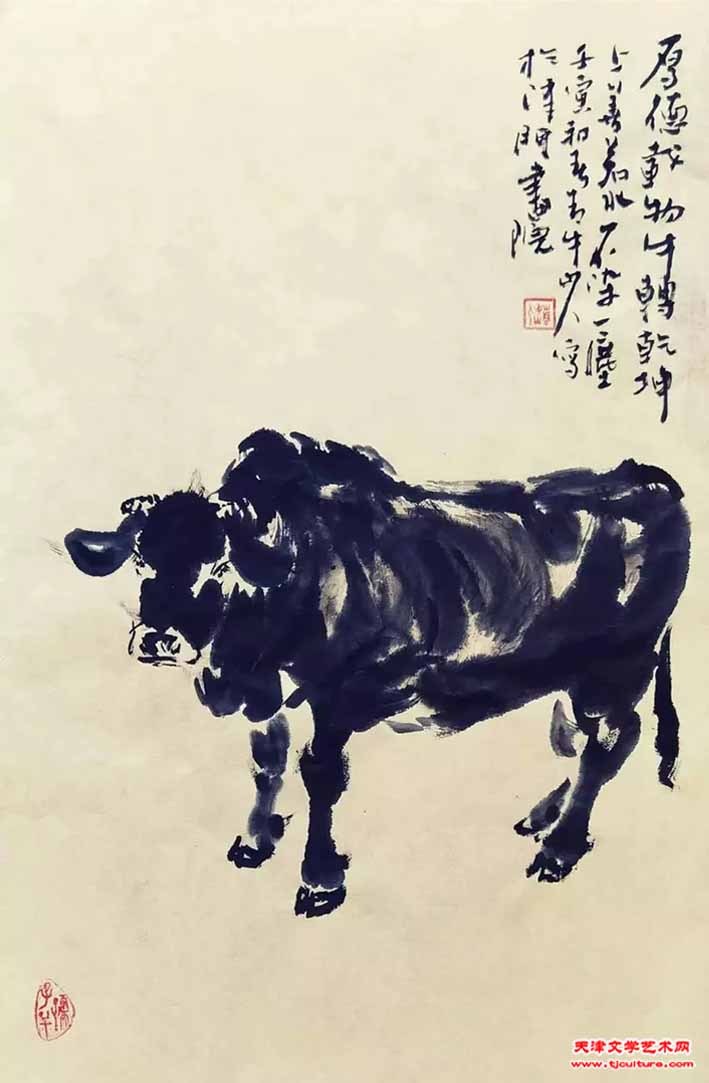 厚德載物牛轉乾坤
上善若水不染一塵
壬寅初春青牛山人寫
於津門書院
天津文学艺术网
www.tjculture.com